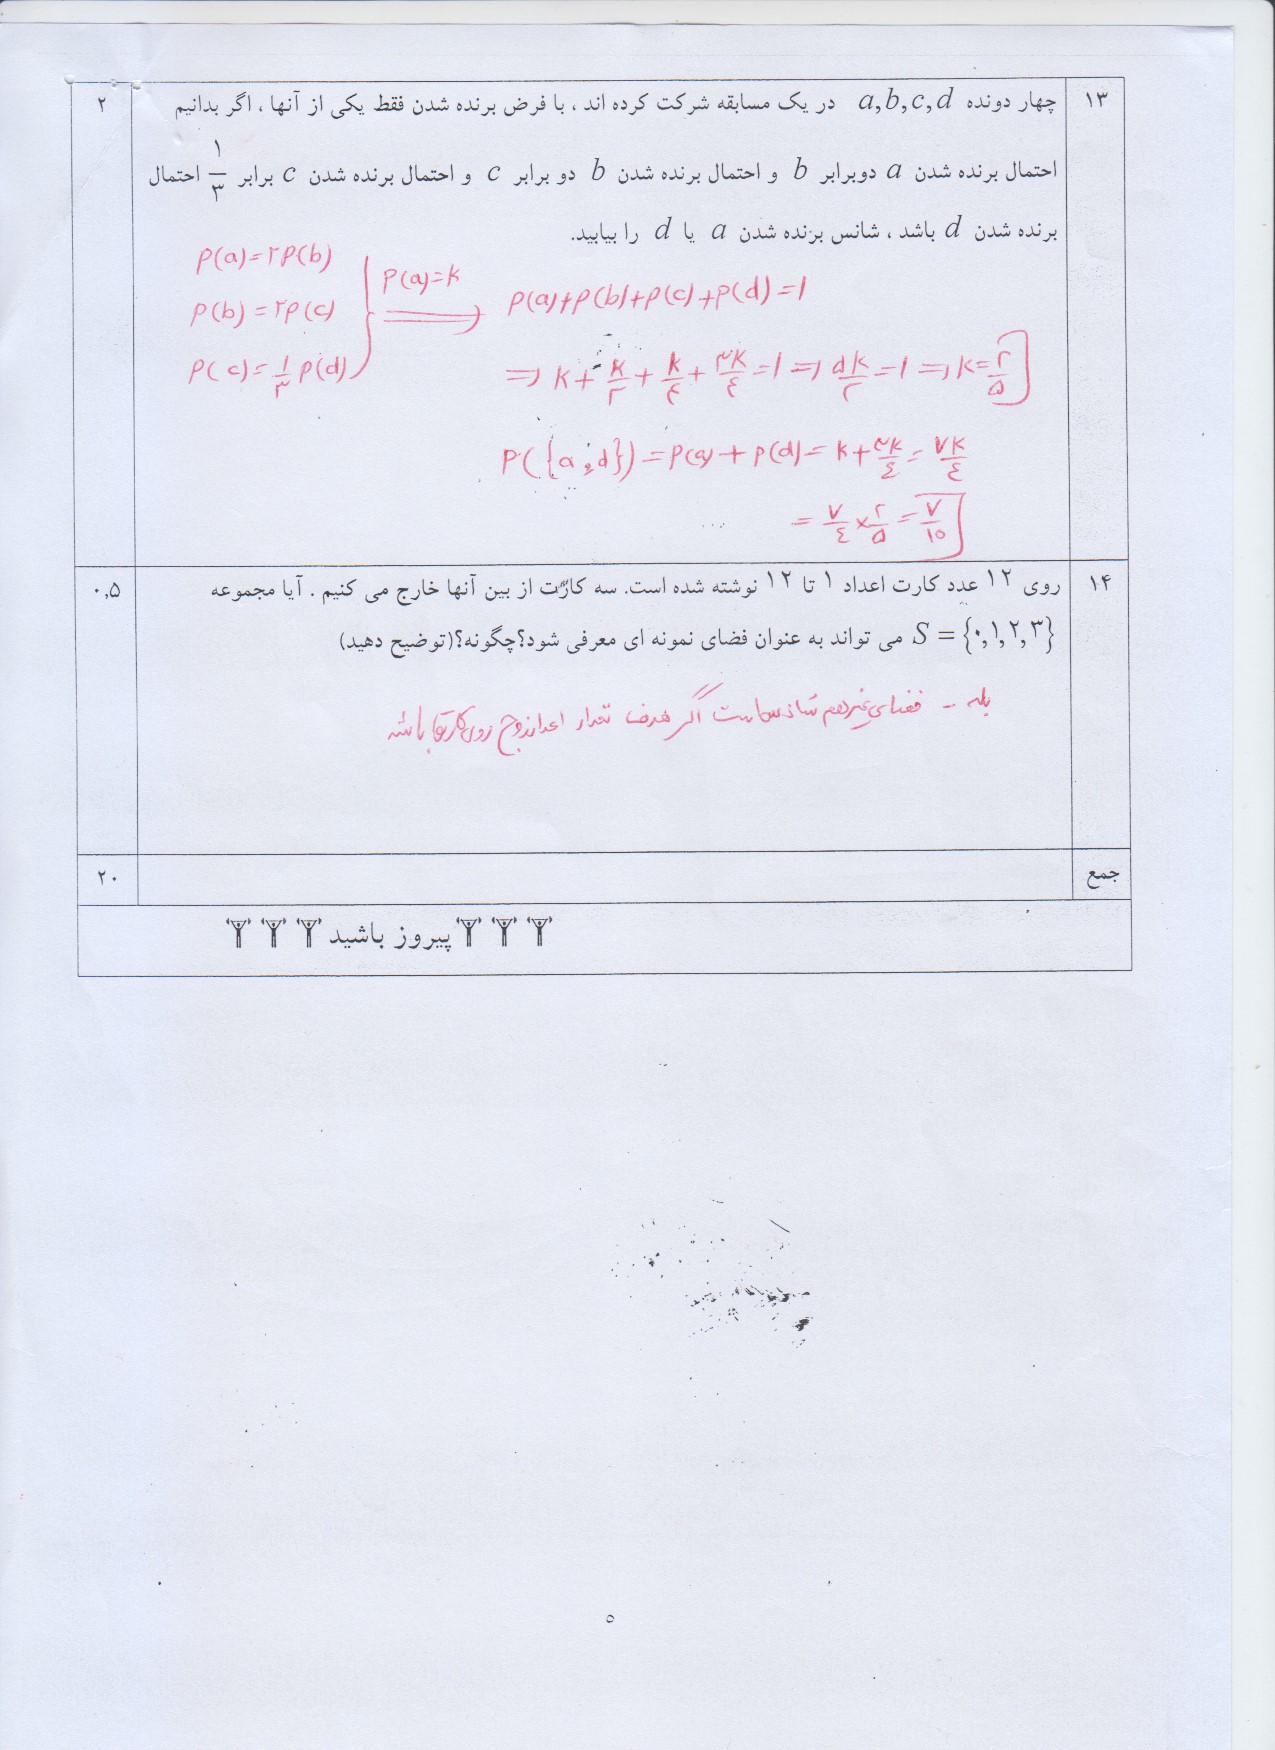 ۱۳ چهار دونده a,b,c,d در یک مسابقه شرکت کرده اند ، با فرض برنده شدن فقط یکی از آنها ، اگر بدانیم ۲
احتمال برنده شدن a دوبرابر b و احتمال برنده شدن b دو برابر c و احتمال برنده شدن c برابر ۱/۳ احتمال
برنده شدن d باشد ، شانس برنده شدن a یا d را بیابید.
P(a)=۲P(b)
P(b)=۲P(c)
P(c)=۱/۳ P(d)
P(a)=k ⟹ P(a)+P(b)+P(c)+P(d)=۱
⟹ k+k/۲+k/۴+۳k/۴=۱ ⟹ ۵k/۲=۱ ⟹ k=۲/۵
P({a,d})=P(a)+P(d)=k+۳k/۴=۷k/۴
=۷/۴×۲/۵=۷/۱۰
۱۴ روی ۱۲ عدد کارت اعداد ۱ تا ۱۲ نوشته شده است. سه کارت از بین آنها خارج می کنیم . آیا مجموعه ۰,۵
S = {۰,۱,۲,۳} می تواند به عنوان فضای نمونه ای معرفی شود؟چگونه؟(توضیح دهید)
بله - فضای غیر هم شانس است اگر هدف تعداد اعداد زوج روی کارتها باشد
جمع ۲۰
پیروز باشید
۵